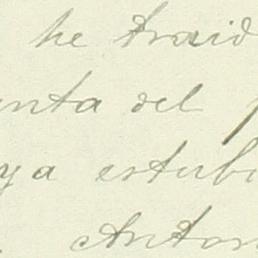 he traid
nta del p
ya estubi
Anton